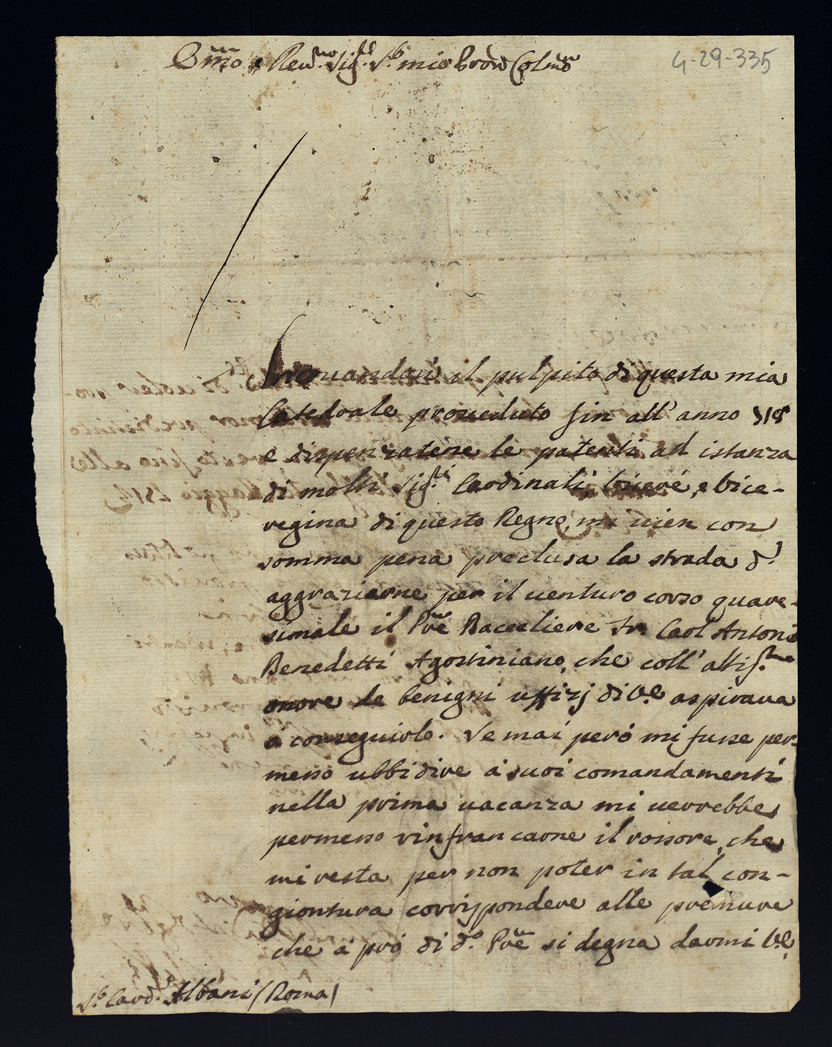 G-29-335
Emo e Revmo Sigr Sr mio Prone Colmo
il pulpito di questa mia
Catedrale proveduto fin all'anno 718
e dispenzatene le patenti ad istanza
di molti Sigri Cardinali, e Vice-
regina di questo Regno, mi vien con
somma pena preclusa la strada d'
aggraziarne per il venturo corso quare-
simale il Pre Baccelliere Fr Carl'Antonio
Benedetti Agostiniano, che coll'altissmo
onore de benigni uffizj di V.E. aspirava
a conseguirlo. Se mai però mi fusse per-
messo ubbidire a suoi comandamenti
nella prima vacanza mi verrebbe
permesso rinfrancarne il rossore, che
mi resta per non poter in tal con-
giontura corrispondere alle premure
che a prò di do Pre si degna darmi V.E.
Sr Card. Albani (Roma)